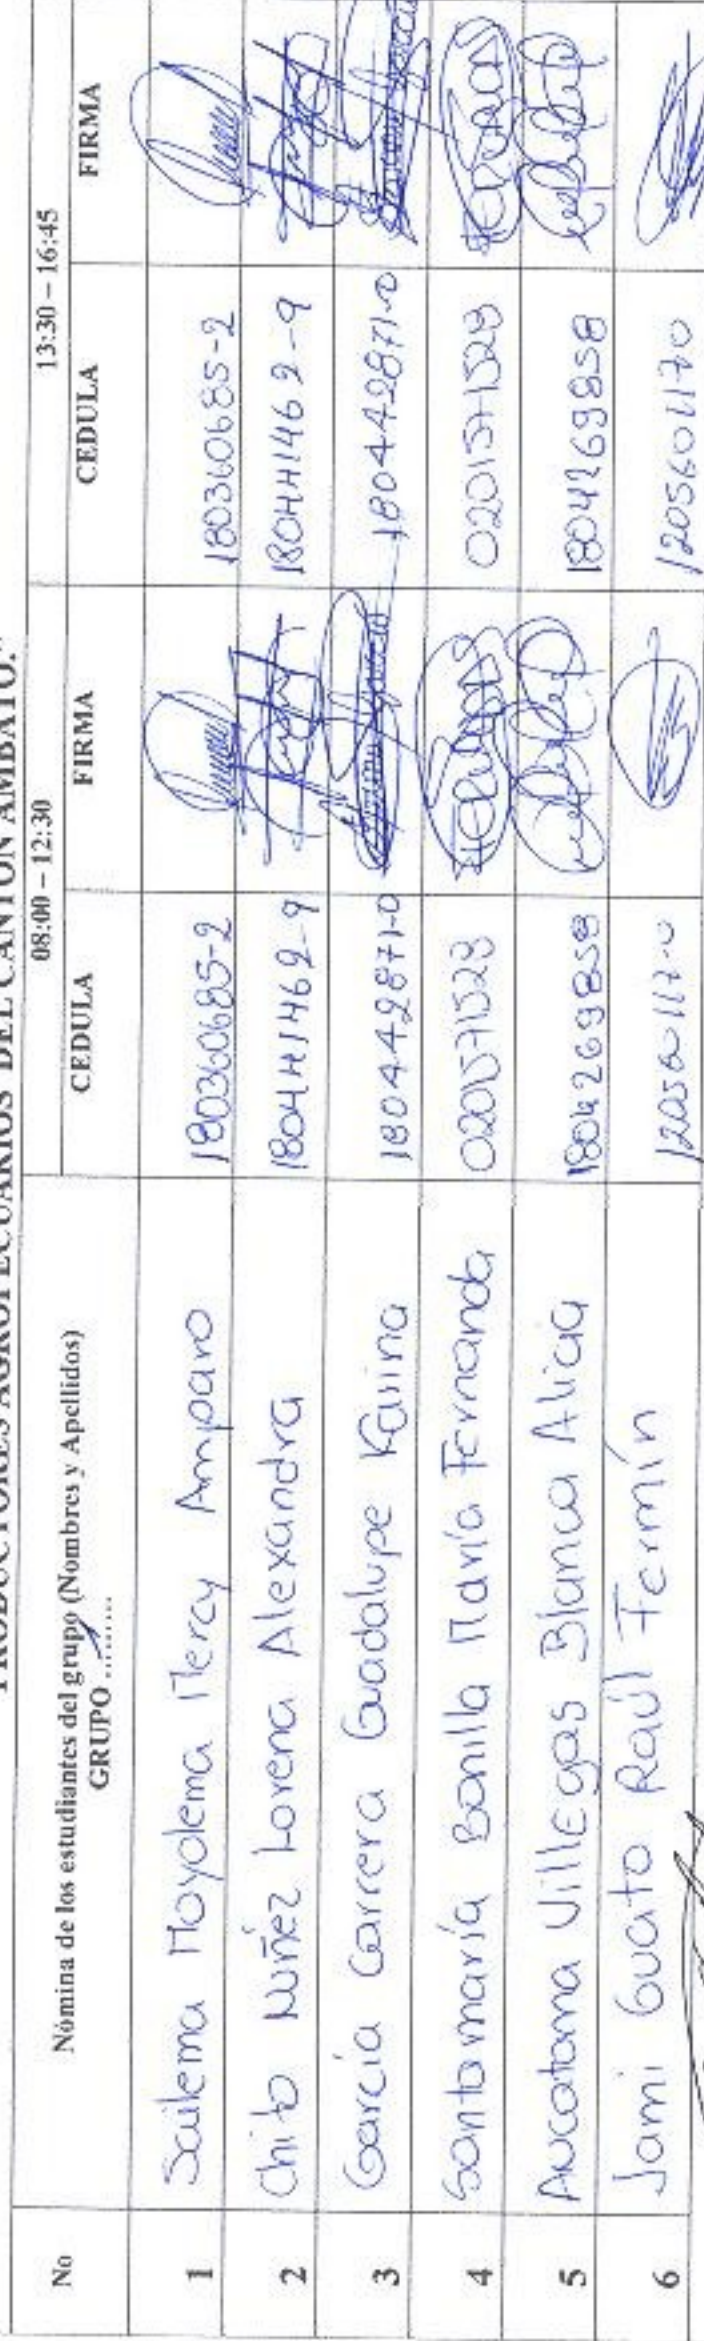 PRODUCTORES AGROPECUARIOS DEL CANTÓN AMBATO."
No
Nómina de los estudiantes del grupo (Nombres y Apellidos)
GRUPO .........
08:00 – 12:30
13:30 – 16:45
CEDULA
FIRMA
CEDULA
FIRMA
1 Sailema Moyolema Mercy Amparo 180360685-2 180360685-2
2 Chito Nuñez Lorena Alexandra 180441462-9 180441462-9
3 García Carrera Guadalupe Karina 180442871-0 180442871-0
4 Santamaría Bonilla María Fernanda 0201571528 0201571528
5 Aucatoma Villegas Blanca Alicia 1804269858 1804269858
6 Jami Guato Raúl Fermín 120560117-0 1205601170